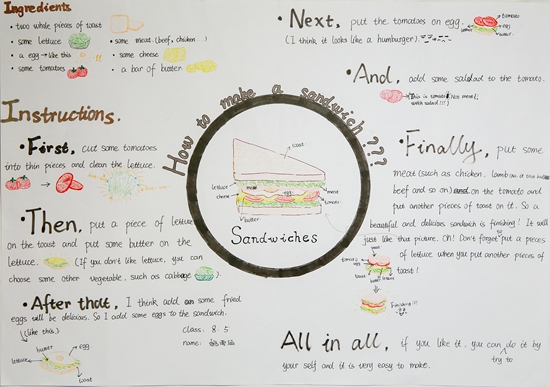 Ingredients
• two whole pieces of toast
• some lettuce
• a egg → like this
• some tomatoes
• some meat. (beef, chicken...)
• some cheese
• a bar of butter
Instructions.
• First, cut some tomatoes
into thin pieces and clean the lettuce.
• Then, put a piece of lettuce
on the toast and put some butter on the
lettuce. (If you don't like lettuce, you can
choose some other vegetable, such as cabbage
• After that, I think add an some fried
eggs will be delicious. So I add some eggs to the sandwich.
(like this.)
butter
egg
lettuce
toast
class: 8.5
name:
How to make a sandwich???
toast
lettuce
meat
egg
cheese
meat
tomato
butter
Sandwiches
• Next, put the tomatoes on egg.
(I think it looks like a humburger).
tomato
egg
lettuce
butter
• And, add some salad to the tomato.
This is tomato (Not meat)
with salad!!!
• Finally, put some
meat (such as chicken, lamb
beef and so on) and on the tomato and
put another pieces of toast on it. So a
beautiful and delicious sandwich is finishing! It will
just like that picture. Oh! Don't forget put a pieces
of lettuce when you put another pieces of
toast!
tomato
egg
toast
butter
lettuce
Finishing!!!
All in all, if you like it, you can do it by
try to
your self and it is very easy to make.